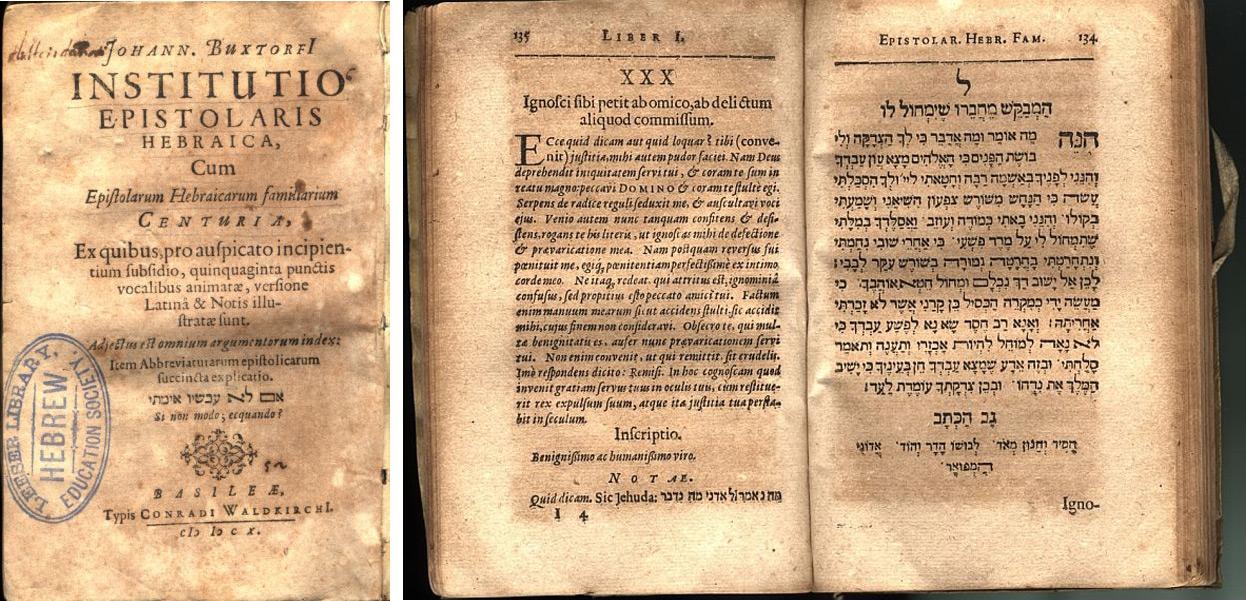 JOHANN. BUXTORFI
INSTITUTIO
EPISTOLARIS
HEBRAICA,
Cum
Epistolarum Hebraicarum familiarium
CENTURIA,
Ex quibus, pro auspicato incipien-
tium subsidio, quinquaginta punctis
vocalibus animatæ, versione
Latinâ & Notis illu-
stratæ sunt.
Adjectus est omnium argumentorum index:
Item Abbreviaturarum epistolicarum
succincta explicatio.
אם לא עכשיו אימתי
Si non modo; ecquando?
BASILEÆ,
Typis CONRADI WALDKIRCHI.
cIↃ IↃ c X.
LEESER LIBRARY.
HEBREW
EDUCATION SOCIETY.
135 LIBER I.
XXX
Ignosci sibi petit ab omico, ab delictum
aliquod commissum.
ECce quid dicam aut quid loquar? tibi (conve-
nit) justitia, mihi autem pudor faciei. Nam Deus
deprehendit iniquitatem servi tui, & coram te sum in
reatu magno: peccavi DOMINO & coram te stultè egi.
Serpens de radice reguli seduxit me, & auscultavi voci
ejus. Venio autem nunc tanquam confitens & desi-
stens, rogans te his literis, ut ignoscas mihi de defectione
& prævaricatione mea. Nam postquam reversus sui
pœnituit me, egiq, pœnitentiam perfectissimè ex intimo
corde meo. Ne itaq, redeat qui attritus est, ignominiâ
confusus, sed propitius esto peccato amici tui. Factum
enim manuum mearum sicut accidens stulti, sic accidit
mihi, cujus finem non consideravi. Obsecro te, qui mul-
tæ benignitatis es, aufer nunc prævaricationem servi
tui. Non enim convenit, ut qui remittit, sit crudelis.
Imò respondens dicito: Remisi. In hoc cognoscam quod
invenit gratiam servus tuus in oculis tuis, cum restitue-
rit rex expulsum suum, atque ita justitia tua persta-
bit in seculum.
Inscriptio.
Benignissimo ac humanissimo viro.
NOTAE.
Quid dicam. Sic Jehuda: מה נאמר לאדני מה נדבר
I 4
EPISTOLAR. HEBR. FAM. 134
ל
המבקש מחברו שימחול לו
הנה מה אומר ומה אדבר כי לך הצדקה ולי
בושת הפנים כי האלהים מצא עון עבדך
והנני לפניך באשמה רבה וחטאתי ליי ולך הסכלתי
עשה כי הנחש משורש צפעון השיאני ושמעתי
בקולו והנני באתי כמודה ועוזב ואסלדך במלתי
שתמחול לי על מרד פשעי כי אחרי שובי נחמתי
ונתחרטתי בחרטה גמורה בשורש עקר לבבי
לכן אל ישוב דך נכלם ומחול חטא אוהבך כי
מעשה ידי כמקרה הכסיל גם קרני אשר לא זכרתי
אחריתה ואנא רב חסד שא נא לפשע עבדך כי
לא נאה למוחל להיות אכזרי ותענה ותאמר
סלחתי ובזה אדע שמצא עבדך חן בעיניך כי ישיב
המלך את נדחו ובכן צדקתך עומדת לעד
גב הכתב
חסיד וחנון מאד לבושו הדר והוד אדוני
המפואר
Igno-